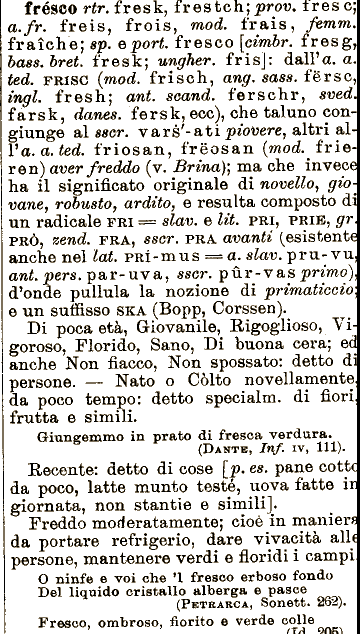 frésco rtr. fresk, frestch; prov. fresc;
a. fr. freis, frois, mod. frais, femm.
fraîche; sp. e port. fresco [cimbr. fresg,
bass. bret. fresk; ungher. fris]: dall'a. a.
ted. FRISC (mod. frisch, ang. sass. fërsc,
ingl. fresh; ant. scand. ferschr, sved.
farsk, danes. fersk, ecc), che taluno con-
giunge al sscr. varš'-ati piovere, altri al-
l'a. a. ted. friosan, frëosan (mod. frie-
ren) aver freddo (v. Brina); ma che invece
ha il significato originale di novello, gio-
vane, robusto, ardito, e resulta composto di
un radicale FRI = slav. e lit. PRI, PRIE, gr.
PRÒ, zend. FRA, sscr. PRA avanti (esistente
anche nel lat. PRÌ-mus = a. slav. pru-vu,
ant. pers. par-uva, sscr. pûr-vas primo),
d'onde pullula la nozione di primaticcio;
e un suffisso SKA (Bopp, Corssen).
Di poca età, Giovanile, Rigoglioso, Vi-
goroso, Florido, Sano, Di buona cera; ed
anche Non fiacco, Non spossato: detto di
persone. — Nato o Còlto novellamente,
da poco tempo: detto specialm. di fiori,
frutta e simili.
Giungemmo in prato di fresca verdura.
(DANTE, Inf. IV, 111).
Recente: detto di cose [p. es. pane cotto
da poco, latte munto testé, uova fatte in
giornata, non stantie e simili].
Freddo moderatamente; cioè in maniera
da portare refrigerio, dare vivacità alle
persone, mantenere verdi e floridi i campi.
O ninfe e voi che 'l fresco erboso fondo
Del liquido cristallo alberga e pasce
(PETRARCA, Sonett. 262).
Fresco, ombroso, fiorito e verde colle
(Id. 205)